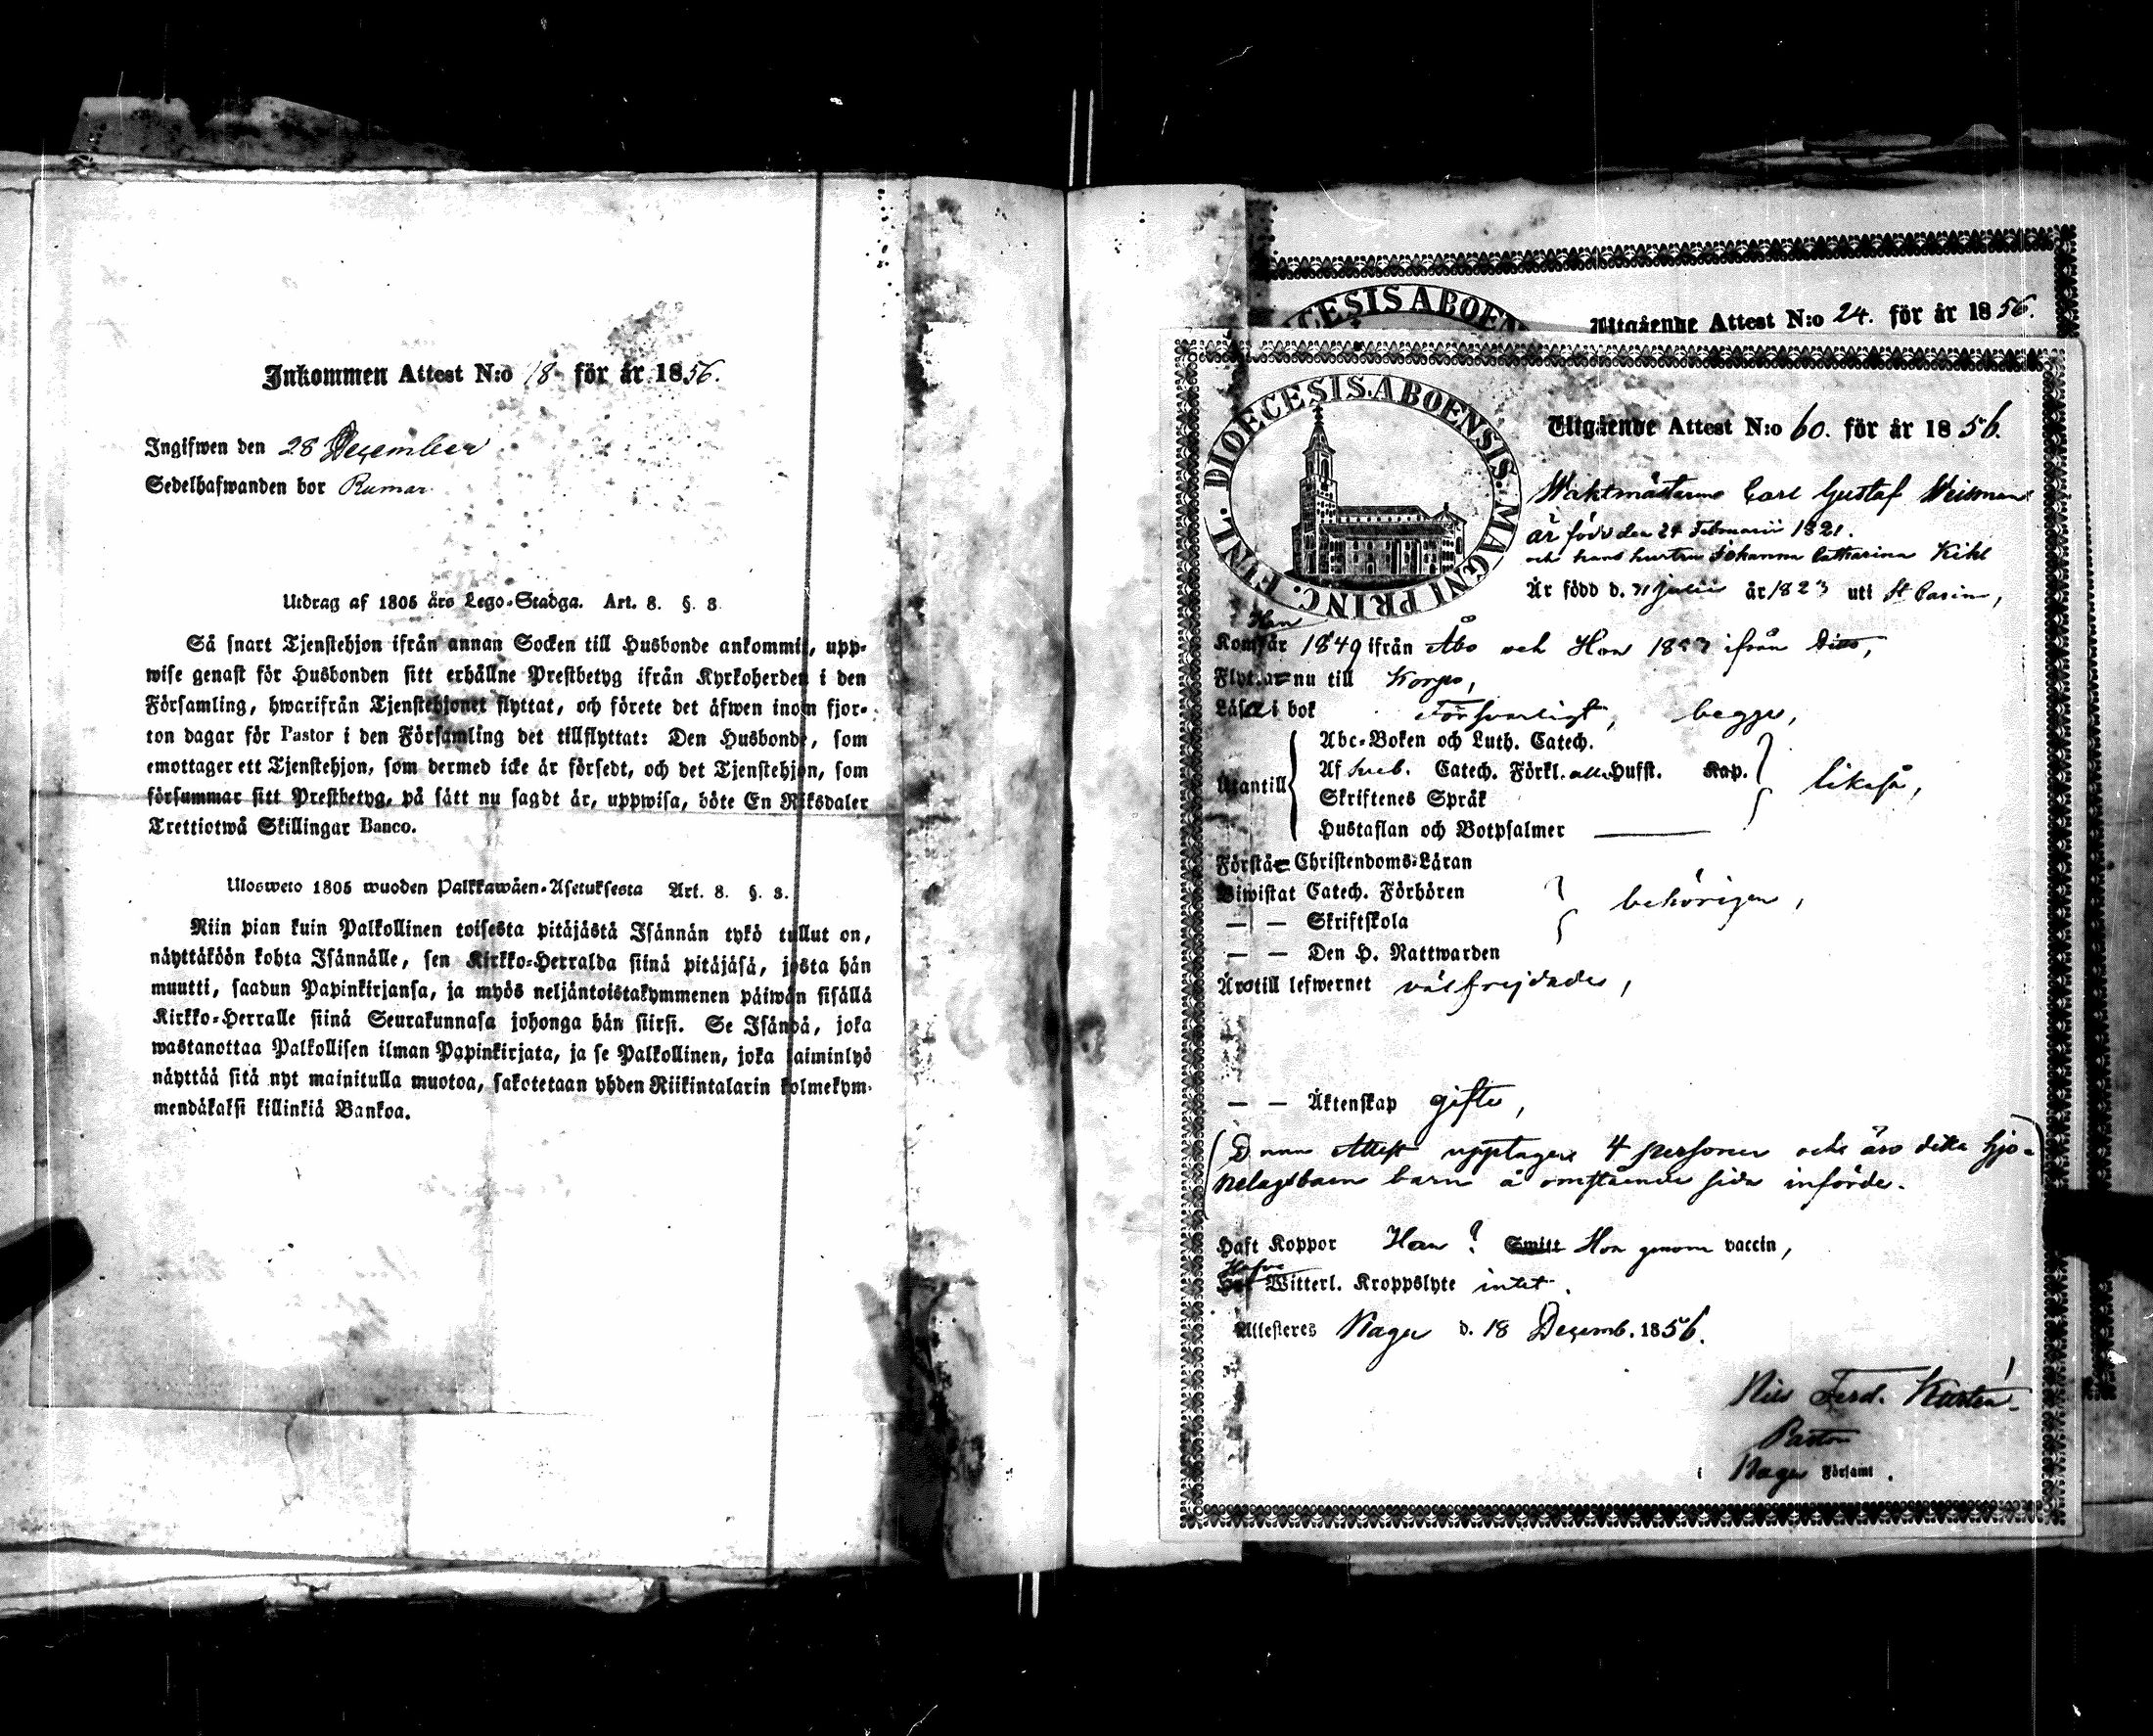 Inkommen Attest N:o 18 för år 1856.
Ingifwen den 28 December
Sedelhafwanden bor Rumar
Utdrag af 1805 års Lego-Stadga. Art. 8. §. 3.
Så snart Tjenstehjon ifrån annan Socken till Husbonde ankommit, upp-
wise genast för Husbonden sitt erhållne Prestbetyg ifrån Kyrkoherden i den
Församling, hwarifrån Tjenstehjonet flyttat, och förete det äfwen inom fjor-
ton dagar för Pastor i den Församling det tillflyttat: Den Husbonde, som
emottager ett Tjenstehjon, som dermed icke är försedt, och det Tjenstehjon, som
försummar sitt Prestbetyg, på sätt nu sagdt är, uppwisa, böte En Riksdaler
Trettiotwå Skillingar Banco.
Ulosweto 1805 wuoden Palkkawäen-Asetuksesta Art. 8. §. 3.
Niin pian kuin Palkollinen toisesta pitäjästä Isännän tykö tullut on,
näyttäköön kohta Isännälle, sen Kirkko-Herralda siinä pitäjäsä, josta hän
muutti, saadun Papinkirjansa, ja myös neljäntoistakymmenen päiwän sisällä
Kirkko-Herralle siinä Seurakunnasa johonga hän siirsi. Se Isändä, joka
wastanottaa Palkollisen ilman Papinkirjata, ja se Palkollinen, joka laiminlyö
näyttää sitä nyt mainitulla muotoa, sakotetaan yhden Riikintalarin kolmekym-
mendäkaksi killinkiä Bankoa.
DIOECESIS ABOEN
Utgående Attest N:o 24. för år 1856.
DIOECESIS. ABOENSIS. MAGNI PRINC. FINL.
Utgående Attest N:o 60. för år 1856.
Waktmästaren Carl Gustaf
är född den 24 Februarii 1821.
och hans hustru Johanna Catharina Kihl
Är född d. Julii år 1823 uti St Carin,
Han
Kom år 1849 ifrån Åbo och Hon ifrån Ditto,
Flytt. nu till Korpo,
Läsa i bok Försvarligt, begge,
Abc-Boken och Luth. Catech.
Af Sveb. Catech. Förkl. alla Hufst. Kap.
Utantill likaså,
Skriftenes Språk
Hustaflan och Botpsalmer
Förstå Christendoms-Läran
Biwistat Catech. Förhören behörigen,
— — Skriftskola
— — Den H. Nattwarden
Äro till lefwernet välfrejdade,
— — Äktenskap gifte,
Denna Attest upptager 4 personer och äro detta hjo-
nelags barn å omstående sida införde.
Haft Koppor Han ? Smitt Hon genom vaccin,
Hafva
Witterl. Kroppslyte intet.
Attesteres Nagu d. 18 Decemb. 1856.
Nils Ferd.
Pastor
i Nagu Församl.